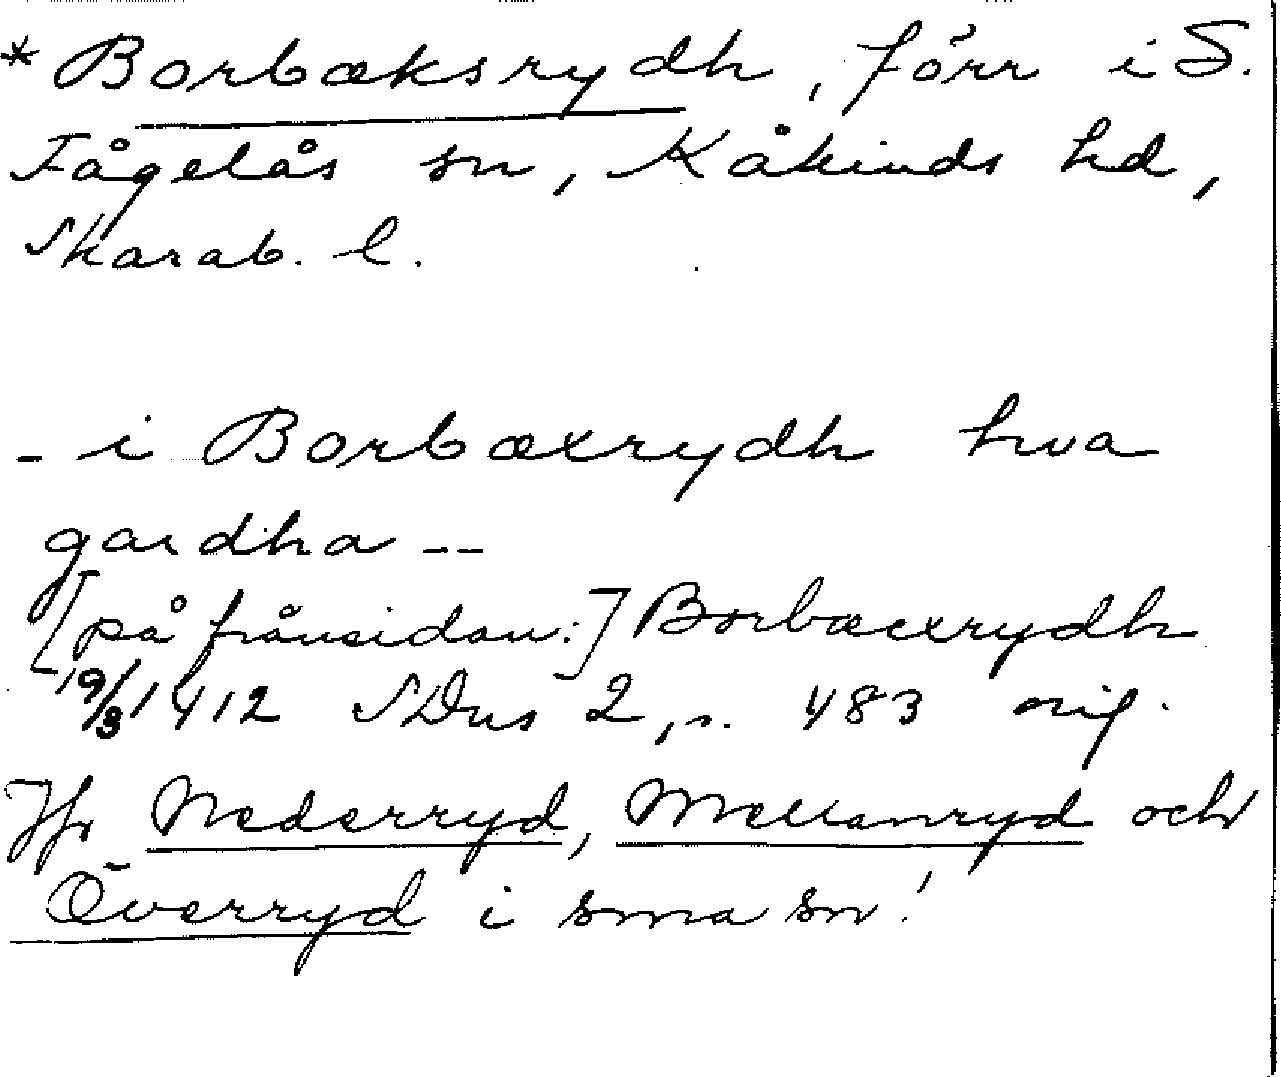 * Borbæksrydh, förr i S.
Fågelås sn, Kåkinds hd,
Skarab. l.
- i Borbæxrydh hwa
gardha --
[på frånsidan:] Borbæcxrydh
19/3 1412 SDns 2, s. 483 orig.
Jfr Nederryd, Mellanryd och
Överryd i sma sn!